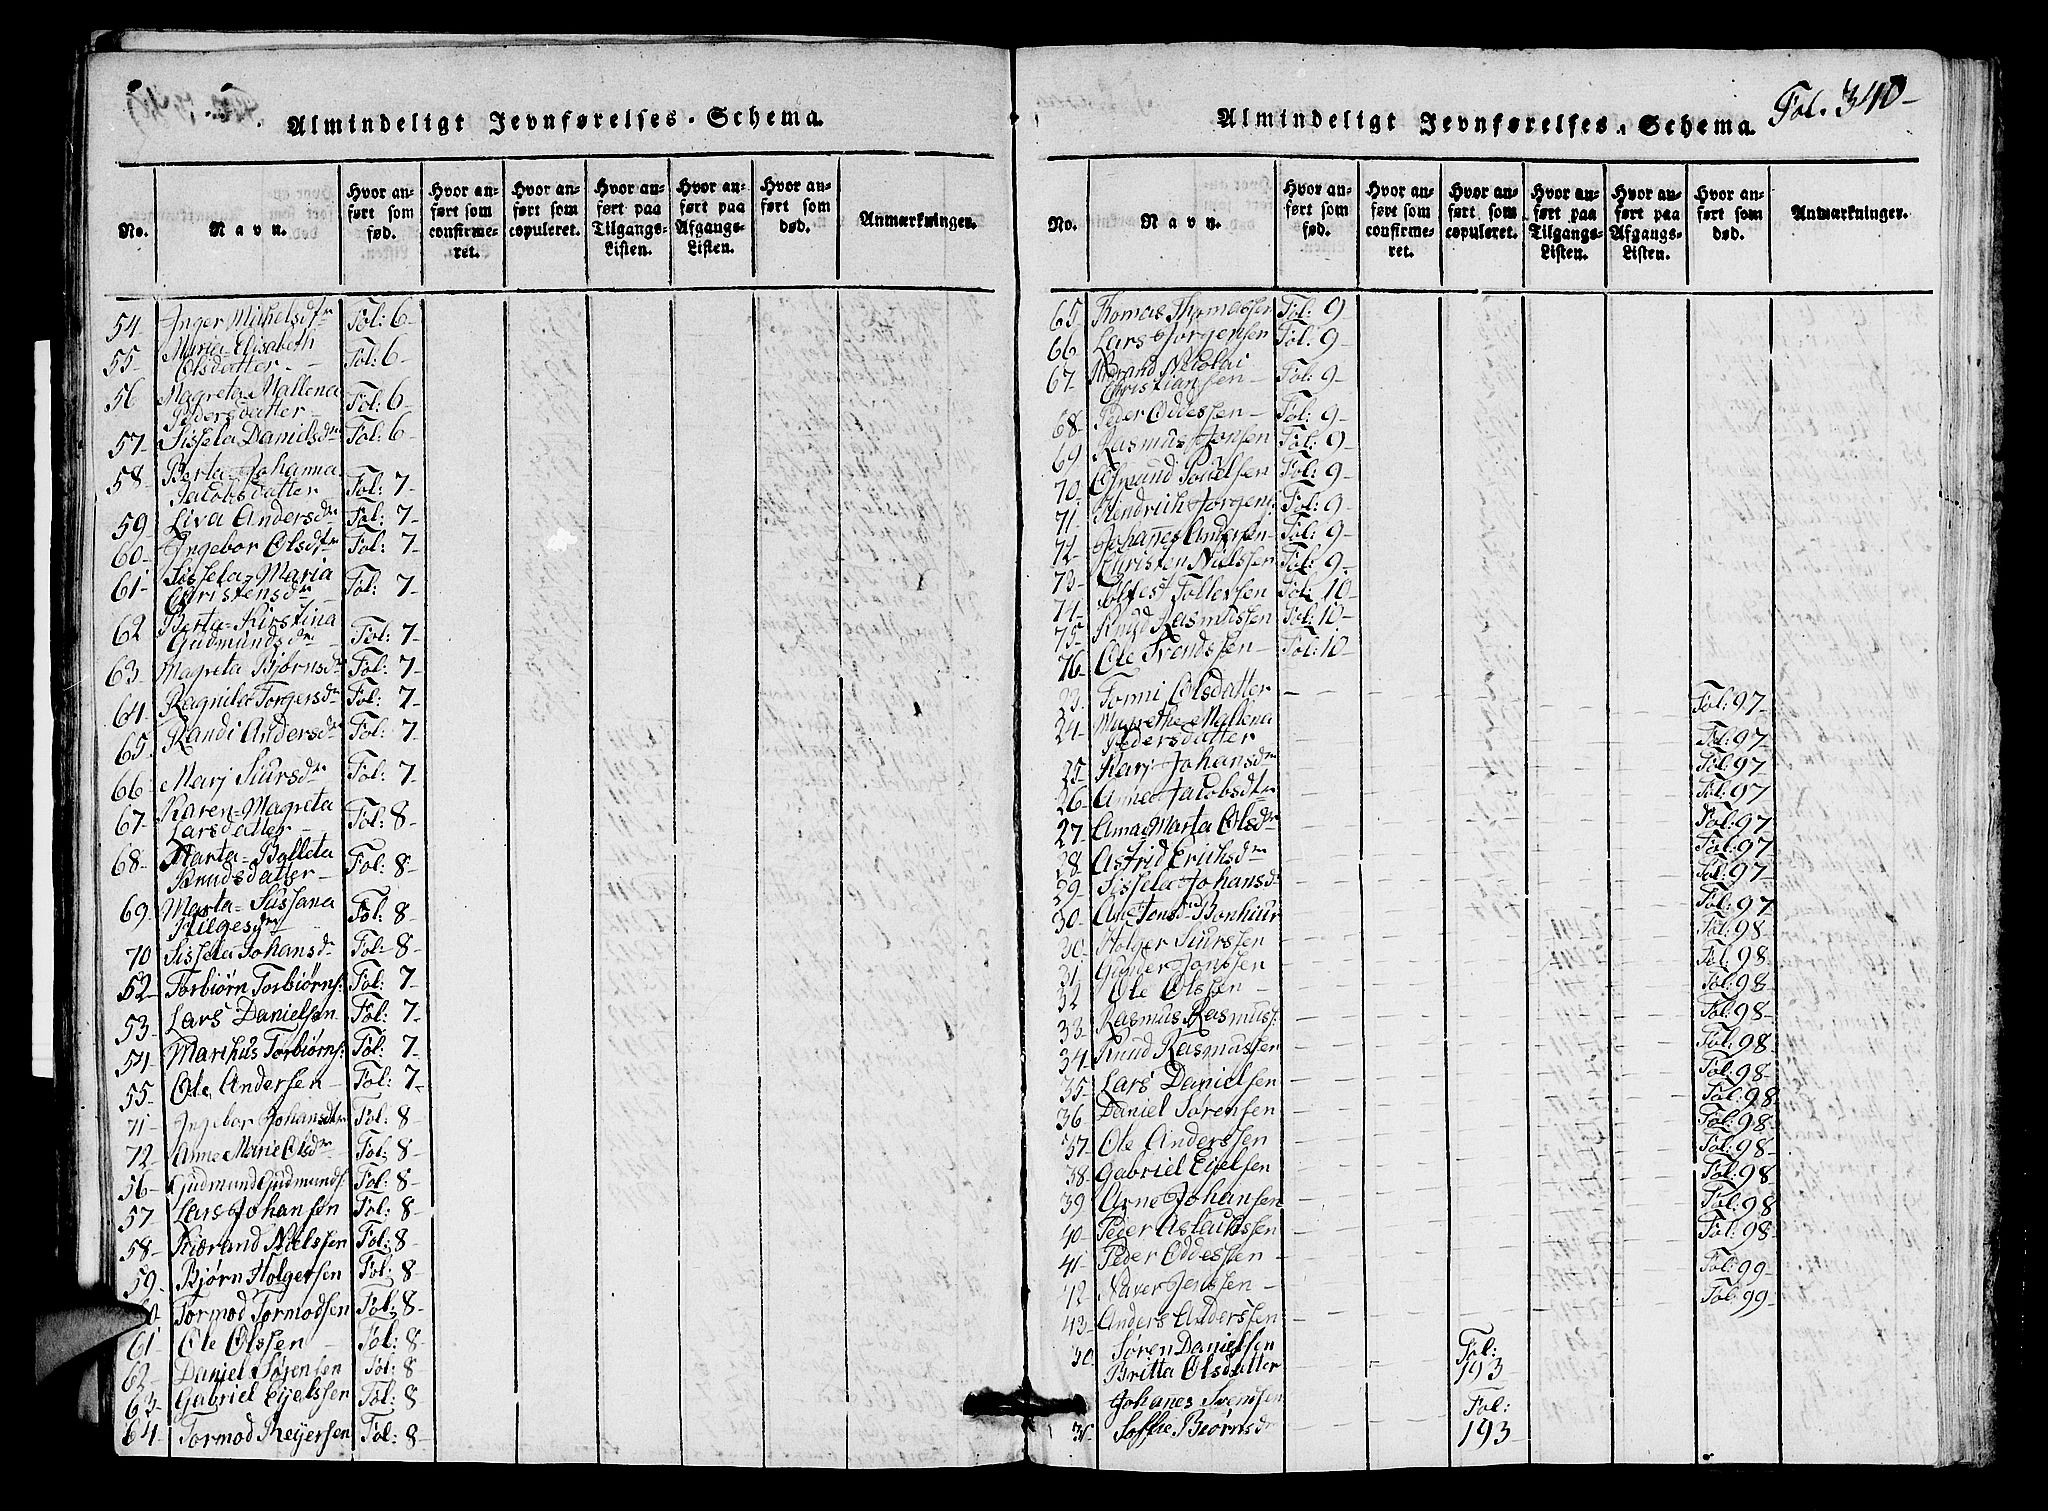 Almindeligt Jevnførelses-Schema.
No.
Navn.
Hvor an-
ført som
fød.
Hvor an-
ført som
confirme-
ret.
Hvor an-
ført som
copuleret.
Hvor an-
ført paa
Tilgangs-
Listen.
Hvor an-
ført paa
Afgangs-
Listen.
Hvor an-
ført som
død.
Anmærkninger.
54- Inger Michelsdtr Fol: 6-
55- Maria Elisabeth
Olsdatter- Fol: 6-
56 Magreta Mallena
Pedersdatter- Fol: 6-
57- Sissela Danielsdr Fol: 6
58- Berta Johanna
Jacobsdatter Fol: 7-
59- Liva Andersdr Fol: 7-
60- Ingebor Olsdtr Fol: 7-
61- Sissela Maria
Christensdr Fol: 7
62 Berta-Kirstina
Gudmundsdr Fol: 7-
63- Magreta Bjørnsdr Fol: 7-
64- Ragnila Torgersdr Fol: 7
65- Randi Andersdr Fol: 7
66- Marj Siursdr Fol: 7
67- Karen-Magreta
Larsdatter Fol: 8-
68- Marta-Balleta
Knudsdatter- Fol: 8-
69- Marta-Sussana
Helgesdr Fol: 8-
70 Sissela Johansdr Fol: 8-
52- Torbiørn Torbiørns: Fol: 7-
53- Lars Danielsen Fol: 7-
54- Marthus Torbiørns: Fol: 7
55- Ole Andersen- Fol: 7-
71- Ingebor Johansdtr Fol: 8-
72- Anne Marie Olsdr Fol: 8-
56- Gudmund Gudmunds: Fol: 8-
57- Lars Johansen Fol: 8-
58- Tiærand Nielssen Fol: 8-
59- Bjørn Holgersen Fol: 8
60 Tormod Tormodsen Fol: 8-
61- Ole Olssen- Fol: 8-
62- Daniel Sørensen Fol: 8
63- Gabriel Ejelssen Fol: 8
64- Tormod Reijersen Fol: 8-
Almindeligt Jevnførelses-Schema. Fol. 340-
No.
Navn.
Hvor an-
ført som
fød.
Hvor an-
ført som
confirme-
ret.
Hvor an-
ført som
copuleret.
Hvor an-
ført paa
Tilgangs-
Listen.
Hvor an-
ført paa
Afgangs-
Listen.
Hvor an-
ført som
død.
Anmærkninger.
65- Tomas Thomassen Fol: 9
66 Lars Jørgensen Fol: 9-
67- Nicolai
Christiansen- Fol: 9-
68- Peder Oddessen- Fol: 9-
69 Rasmus Jonsen Fol: 9-
70- Osmund Poüelsen Fol: 9-
71- Hendrich Jørgens: Fol: 9
72- Johanes Andersen- Fol: 9-
73- Christen Nielssen Fol: 9-
74- Tollessen Fol: 10-
75- Knud Rasmussen Fol: 10-
76- Ole Svendssen- Fol: 10-
23- Tonni Olsdatter Fol: 97-
24- Magrethe Mallena
Pedersdatter Fol: 97-
25- Karj Johansdr Fol: 97-
26- Anne Jacobsdtr Fol: 97
27- Ana Marta Olsdr Fol: 97-
28- Astrid Erichsdr Fol: 97-
29- Sissela Johansdr Fol: 97-
30- Ane Jensdr Bonhuur Fol: 97
30- Holger Siurssen Fol: 98-
31- Guner Jonssen Fol: 98-
32 Ole Olssen- Fol: 98-
33- Rasmus Rasmuss: Fol: 98-
34- Knud Rasmussen Fol: 98-
35- Lars Danielsen Fol: 98-
36 Daniel Sørensen Fol: 98
37- Ole Anderssen Fol: 98-
38- Gabriel Ejelsen Fol: 98-
39 Arne Johansen Fol: 98
40- Peder Aslachssen Fol: 98
41- Peder Oddessen- Fol: 98-
42 Naver Jenssen- Fol: 99-
43- Anders Anderssen Fol: 99-
30. Søren Danielsen Fol:
Britta Olsdatter 193-
Johanes Svensen Fol:
31- Sophie Biørnsdr 193-